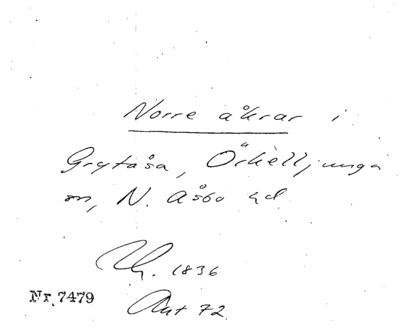 Norre åkrar i
Grytåsa, Örkelljunga
sn, N. Åsbo hd
Lh. 1836
Ant 72
Nr. 7479